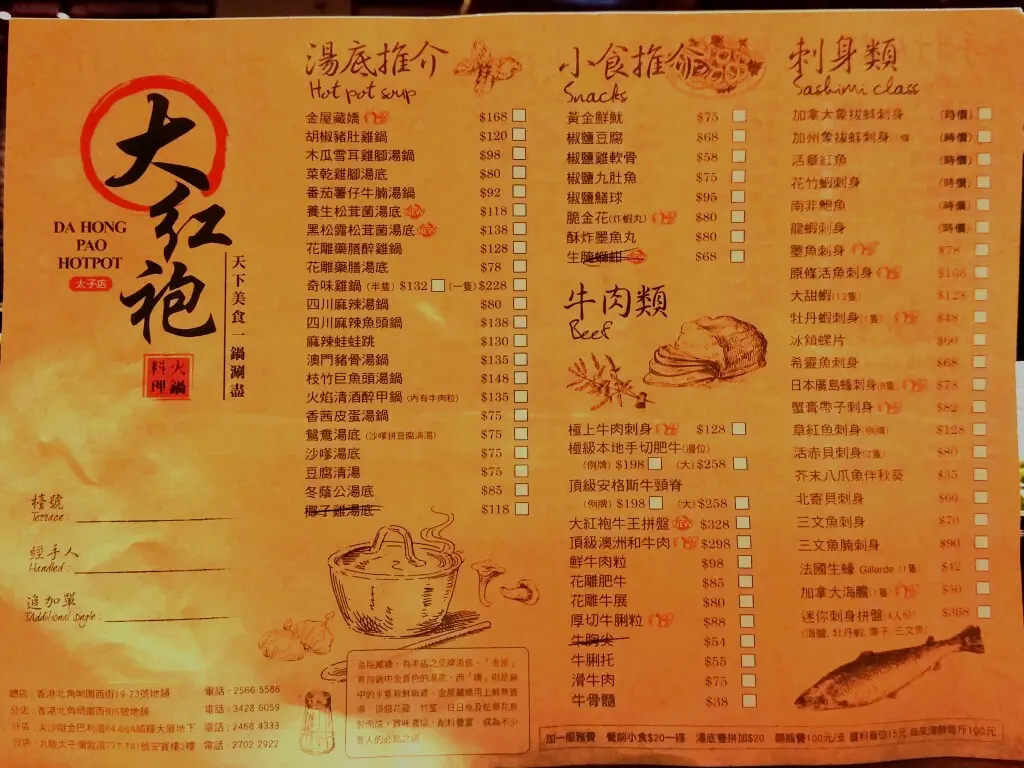 大红袍
DA HONG
PAO
HOTPOT
太子店
天下美食一鍋涮盡
火鍋
料理
檯號
Terrace :
經手人
Handled :
追加單
總店：香港北角明園西街19-23號地舖 電話：2566 5586
分店：香港北角明園西街6號地舖 電話：3428 6059
電話：2468 4333
電話：2702 2922
湯底推介
Hot pot soup
金屋藏嬌 $168
胡椒豬肚雞鍋 $120
木瓜雪耳雞腳湯鍋 $98
菜乾雞腳湯底 $80
番茄薯仔牛腩湯鍋 $92
養生松茸菌湯底 $118
黑松露松茸菌湯底 $138
花雕藥膳醉雞鍋 $128
花雕藥膳湯底 $78
奇味雞鍋 (半隻) $132 (一隻) $228
四川麻辣湯鍋 $80
四川麻辣魚頭鍋 $138
麻辣蛙蛙跳 $130
澳門豬骨湯鍋 $135
枝竹巨魚頭湯鍋 $148
火焰清酒醉甲鍋 (內有牛肉粒) $135
香茜皮蛋湯鍋 $75
鴛鴦湯底 (沙嗲拼豆腐清湯) $75
沙嗲湯底 $75
豆腐清湯 $75
冬蔭公湯底 $85
椰子雞湯底 $118
小食推介
Snacks
黃金鮮魷 $75
椒鹽豆腐 $68
椒鹽雞軟骨 $58
椒鹽九肚魚 $75
椒鹽鱔球 $95
脆金花(炸蝦丸) $80
酥炸墨魚丸 $80
生醃蟛蜞 $68
牛肉類
Beef
極上牛肉刺身 $128
極級本地手切肥牛(邊位)
(例牌) $198 (大) $258
頂級安格斯牛頸脊
(例牌) $198 (大) $258
大紅袍牛王拼盤 $328
頂級澳洲和牛肉 $298
鮮牛肉粒 $98
花雕肥牛 $85
花雕牛展 $80
厚切牛脷粒 $88
牛胸尖 $54
牛脷托 $55
滑牛肉 $75
牛骨髓 $38
刺身類
Sashimi class
加拿大象拔蚌刺身 (時價)
加州象拔蚌刺身 (時價)
活章紅魚 (時價)
花竹蝦刺身 (時價)
南非鮑魚 (時價)
龍蝦刺身 (時價)
墨魚刺身 $78
原條活魚刺身 $168
大甜蝦(12隻) $128
牡丹蝦刺身(1隻) $48
冰鎮螺片 $60
希靈魚刺身 $68
日本廣島蠔刺身 $78
蟹膏帶子刺身 $82
章紅魚刺身(例牌) $128
活赤貝刺身(2隻) $80
芥末八爪魚伴秋葵 $35
北寄貝刺身 $60
三文魚刺身 $70
三文魚腩刺身 $90
法國生蠔 Gillarde (1隻) $42
加拿大海膽(1隻) $50
迷你刺身拼盤 $368
(海膽, 牡丹蝦, 帶子, 三文魚)
加一服務費 餐前小食$20一碟 湯底雙拼加$20 開瓶費100元/支 醬料每位15元